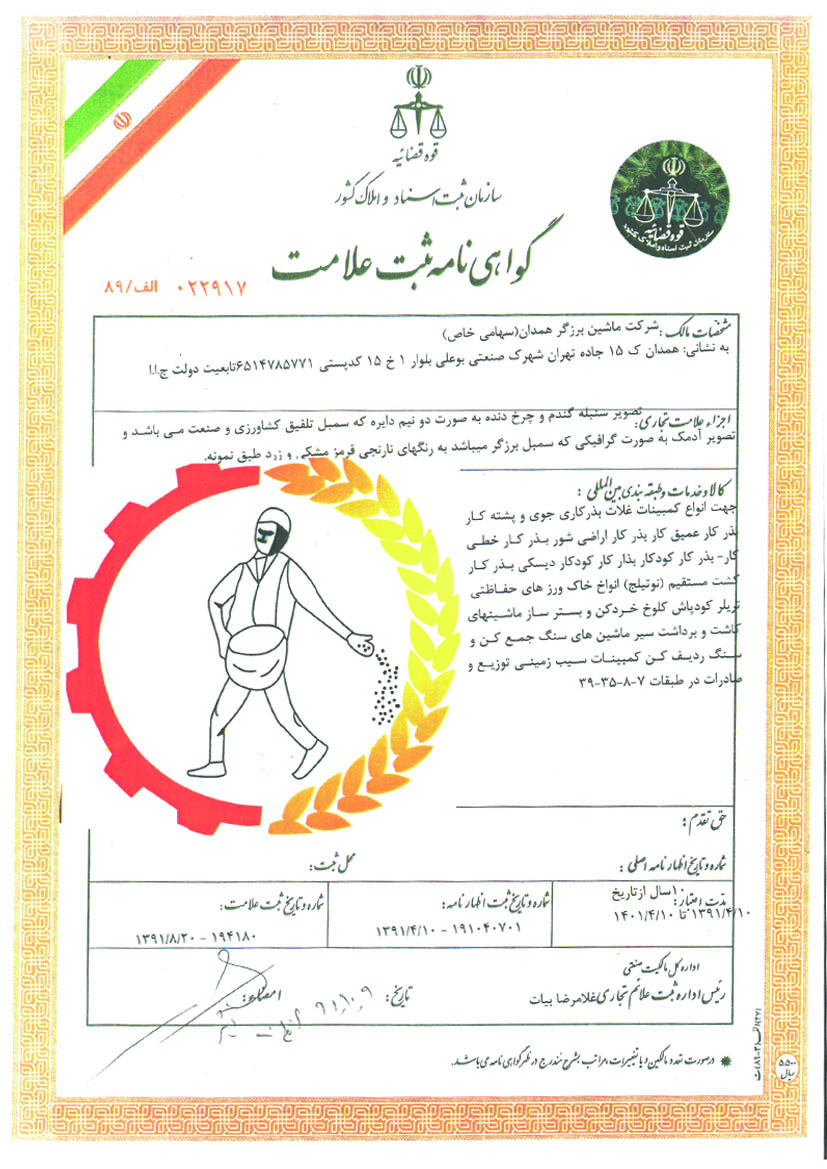 قوه قضائیه
سازمان ثبت اسناد و املاک کشور
قوه قضائیه
سازمان ثبت اسناد و املاک کشور
گواهی نامه ثبت علامت
۰۲۲۹۱۷ الف/۸۹
مشخصات مالک: شرکت ماشین برزگر همدان(سهامی خاص)
به نشانی: همدان ک ۱۵ جاده تهران شهرک صنعتی بوعلی بلوار ۱ خ ۱۵ کدپستی ۶۵۱۴۷۸۵۷۷۱تابعیت دولت ج.ا.ا
اجزاء علامت تجاری: تصویر سنبله گندم و چرخ دنده به صورت دو نیم دایره که سمبل تلفیق کشاورزی و صنعت می باشد و
تصویر آدمک به صورت گرافیکی که سمبل برزگر میباشد به رنگهای نارنجی قرمز مشکی و زرد طبق نمونه.
کالا و خدمات و طبقه بندی بین المللی :
جهت انواع کمبینات غلات بذرکاری جوی و پشته کار
بذر کار عمیق کار بذر کار اراضی شور بذر کار خطی
کار- بذر کار کودکار بذار کار کودکار دیسکی بذر کار
کشت مستقیم (نوتیلج) انواخ خاک ورز های حفاظتی
تریلر کودپاش کلوخ خردکن و بستر ساز ماشینهای
کاشت و برداشت سیر ماشین های سنگ جمع کن و
سنگ ردیف کن کمبینات سیب زمینی توزیع و
صادرات در طبقات ۷-۸-۳۵-۳۹
حق تقدم :
شماره و تاریخ اظهارنامه اصلی :
محل ثبت:
مدت اعتبار: ۱۰سال از تاریخ
۱۳۹۱/۴/۱۰ تا ۱۴۰۱/۴/۱۰
شماره و تاریخ ثبت اظهارنامه:
۱۹۱۰۴۰۷۰۱ - ۱۳۹۱/۴/۱۰
شماره و تاریخ ثبت علامت:
۱۹۴۱۸۰ - ۱۳۹۱/۸/۲۰
اداره کل مالکیت صنعتی
رئیس اداره ثبت علائم تجاری غلامرضا بیات
تاریخ: ۹۱,۱۰,۹
امضاء:
در صورت تعدد مالکین و یا تغییرات، مراتب بشرح مندرج در ظهر گواهی نامه می باشد.
۵۵۰۰
ریال